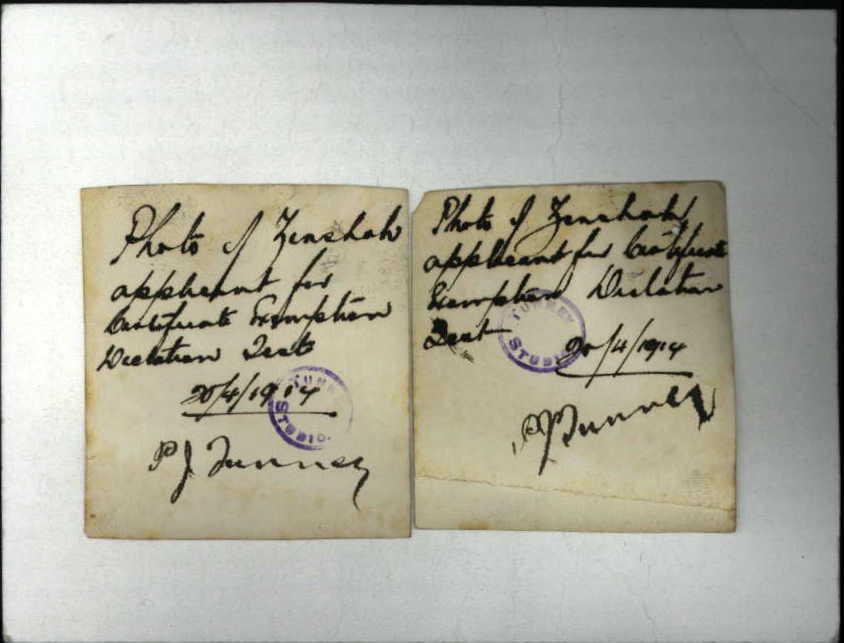 Photo of Zenshah
applicant for
Certificate Exemption
Dictation Test
20/4/1914
P J Tunney
Photo of Zenshah
applicant for Certificate
Exemption Dictation
Test
20/4/1914
P J Tunney
STUDIO
TURKEY
STUDIO